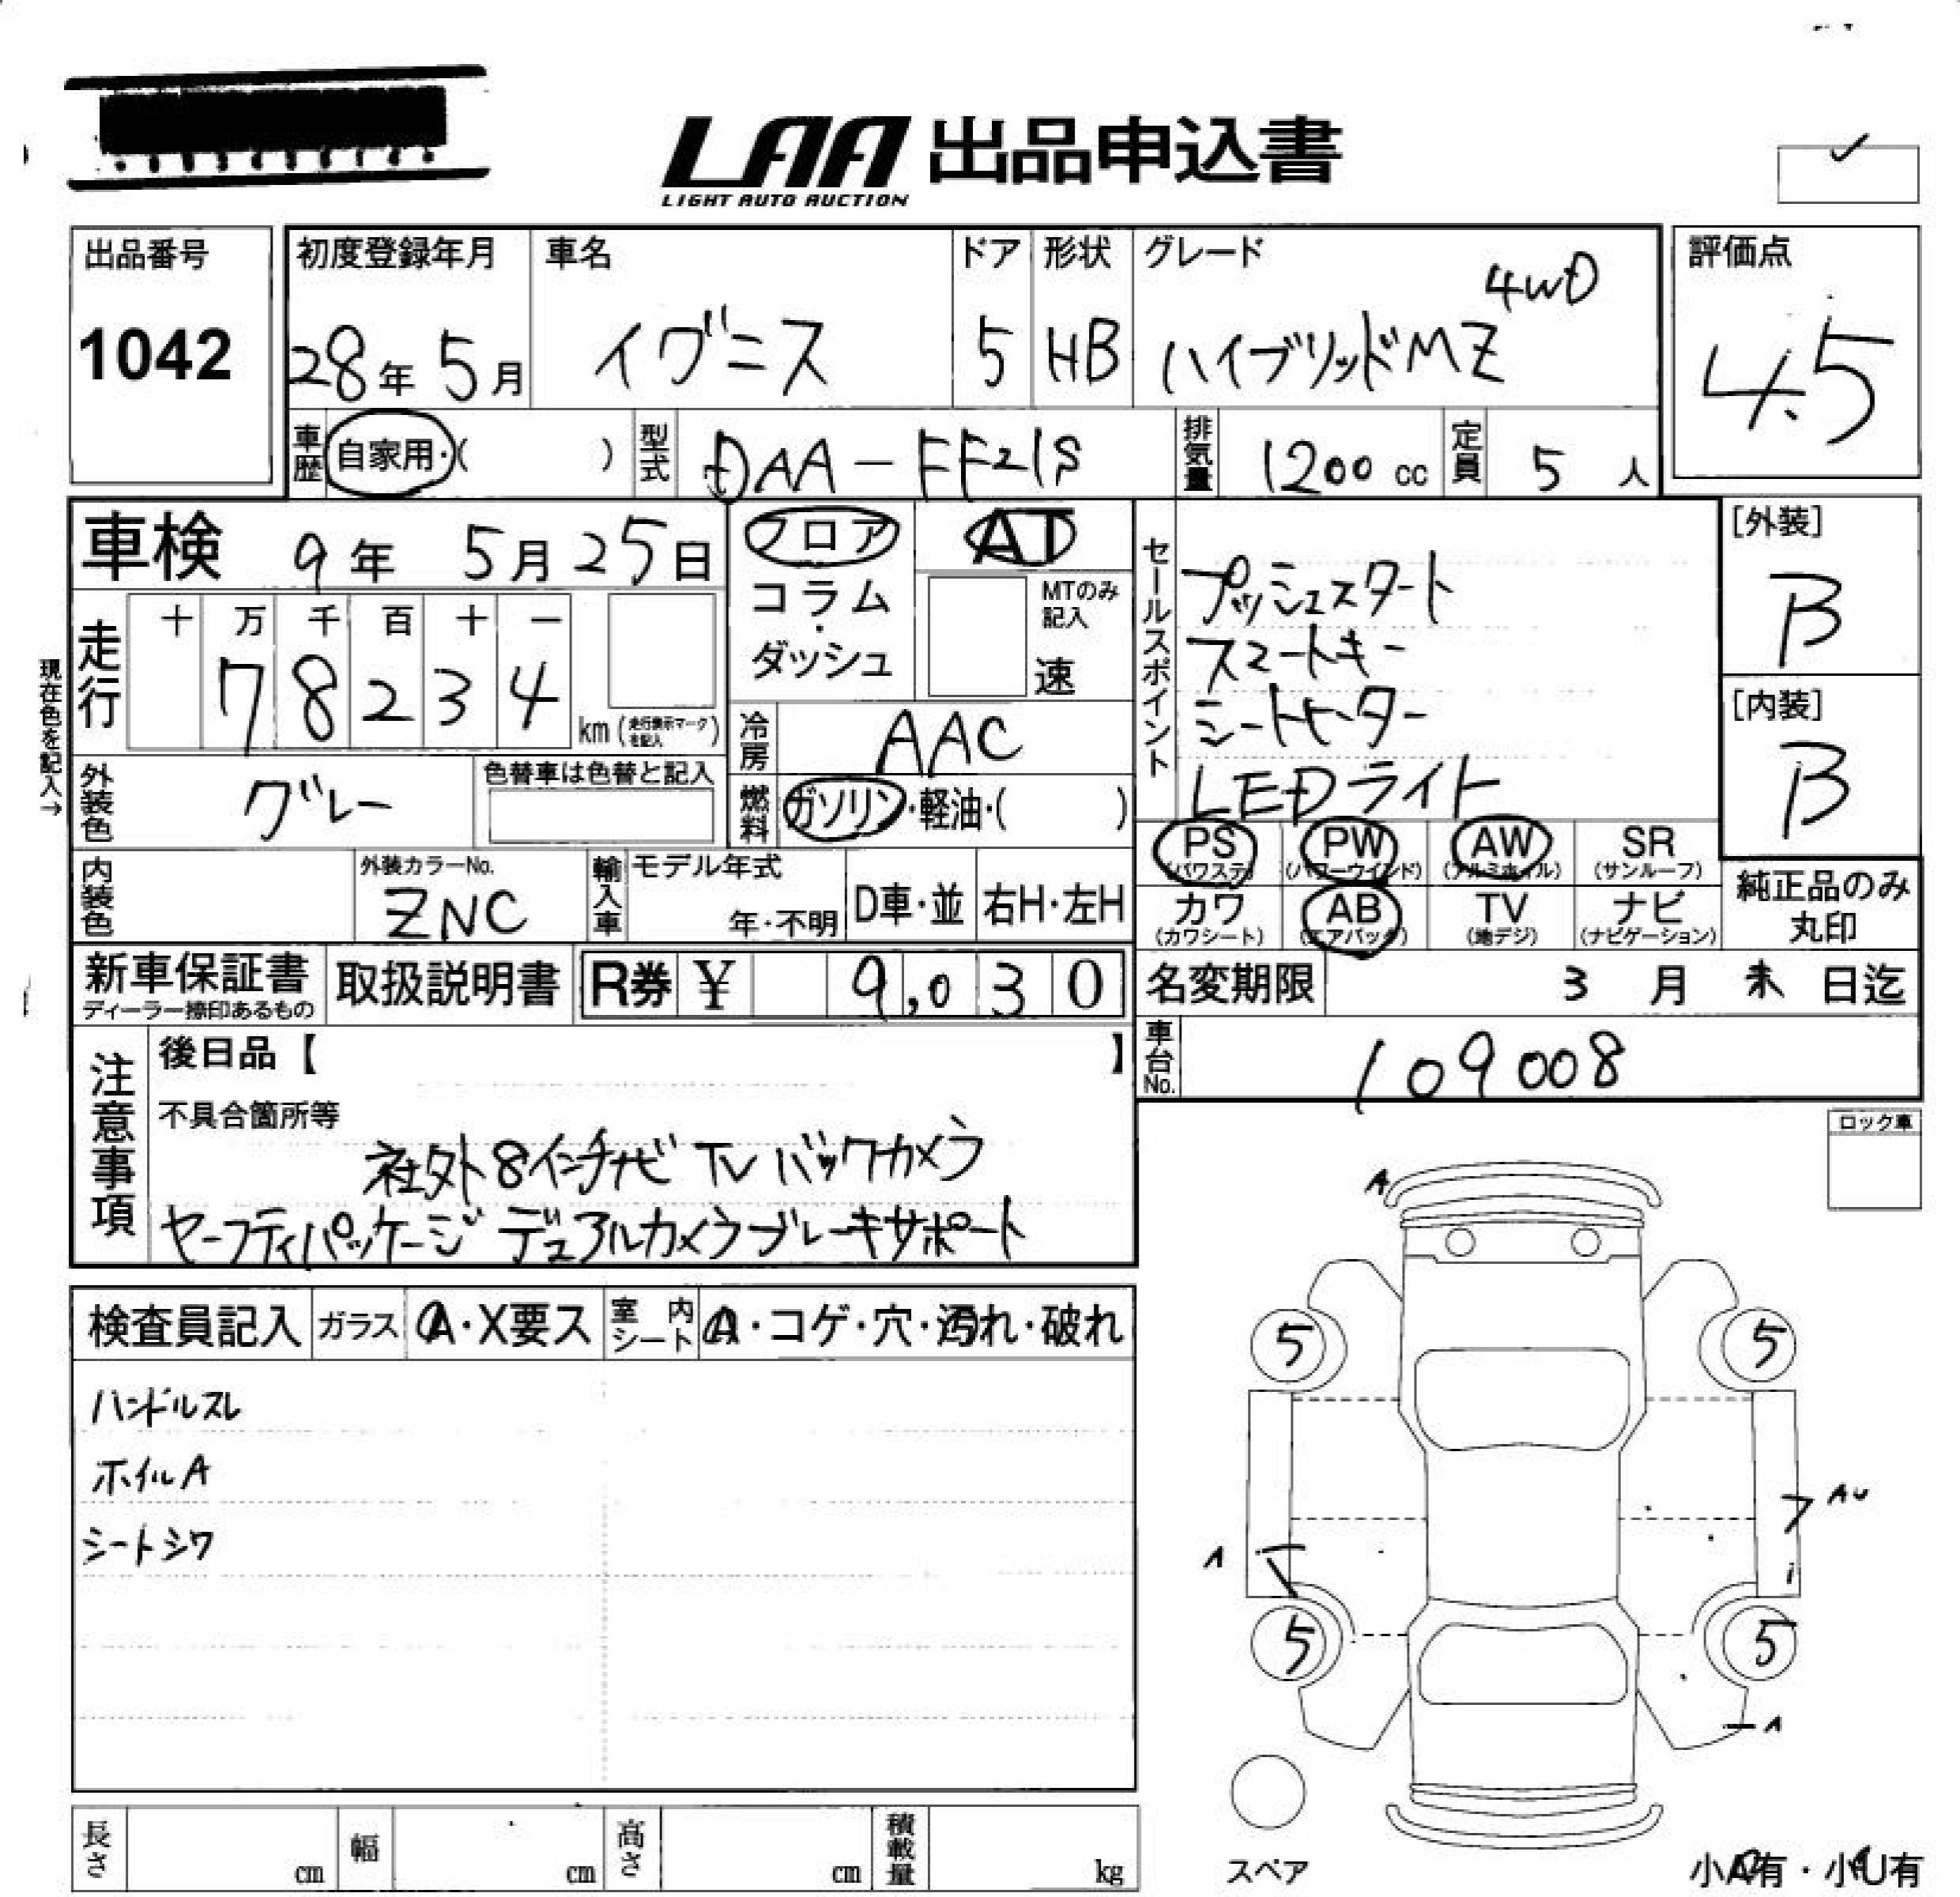 LAA 出品申込書
LIGHT AUTO AUCTION
出品番号
1042
初度登録年月
28年 5月
車名
イグニス
ドア
5
形状
HB
グレード
4WD
ハイブリッドMZ
評価点
4.5
車歴 自家用・( )
型式 DAA-FF21S
排気量 1200 cc
定員 5 人
車検 9年 5月25日
フロア
コラム
・
ダッシュ
AT
MTのみ
記入
速
セールスポイント
プッシュスタート
スマートキー
シートヒーター
LEDライト
[外装]
B
[内装]
B
現在色を記入→
走行
十 万 千 百 十 一
7 8 2 3 4
km (走行表示マークを記入)
冷房 AAC
外装色 グレー
色替車は色替と記入
燃料 ガソリン・軽油・( )
PS (パワステ)
PW (パワーウインド)
AW (アルミホイル)
SR (サンルーフ)
カワ (カワシート)
AB (エアバック)
TV (地デジ)
ナビ (ナビゲーション)
純正品のみ
丸印
内装色
外装カラーNo.
ZNC
輸入車
モデル年式
年・不明
D車・並
右H・左H
新車保証書
ディーラー捺印あるもの
取扱説明書
R券 ¥ 9,030
名変期限 3 月 末 日迄
車台No. 109008
注意事項
後日品【 】
不具合箇所等
社外8インチナビ TV バックカメラ
セーフティパッケージ デュアルカメラブレーキサポート
ロック車
検査員記入
ガラス A・X要ス
室内シート A・コゲ・穴・汚れ・破れ
ハンドルスレ
ホイルA
シートシワ
A
5 5
AU
A
5 5
A
スペア
小A有・小U有
長さ cm
幅 cm
高さ cm
積載量 kg